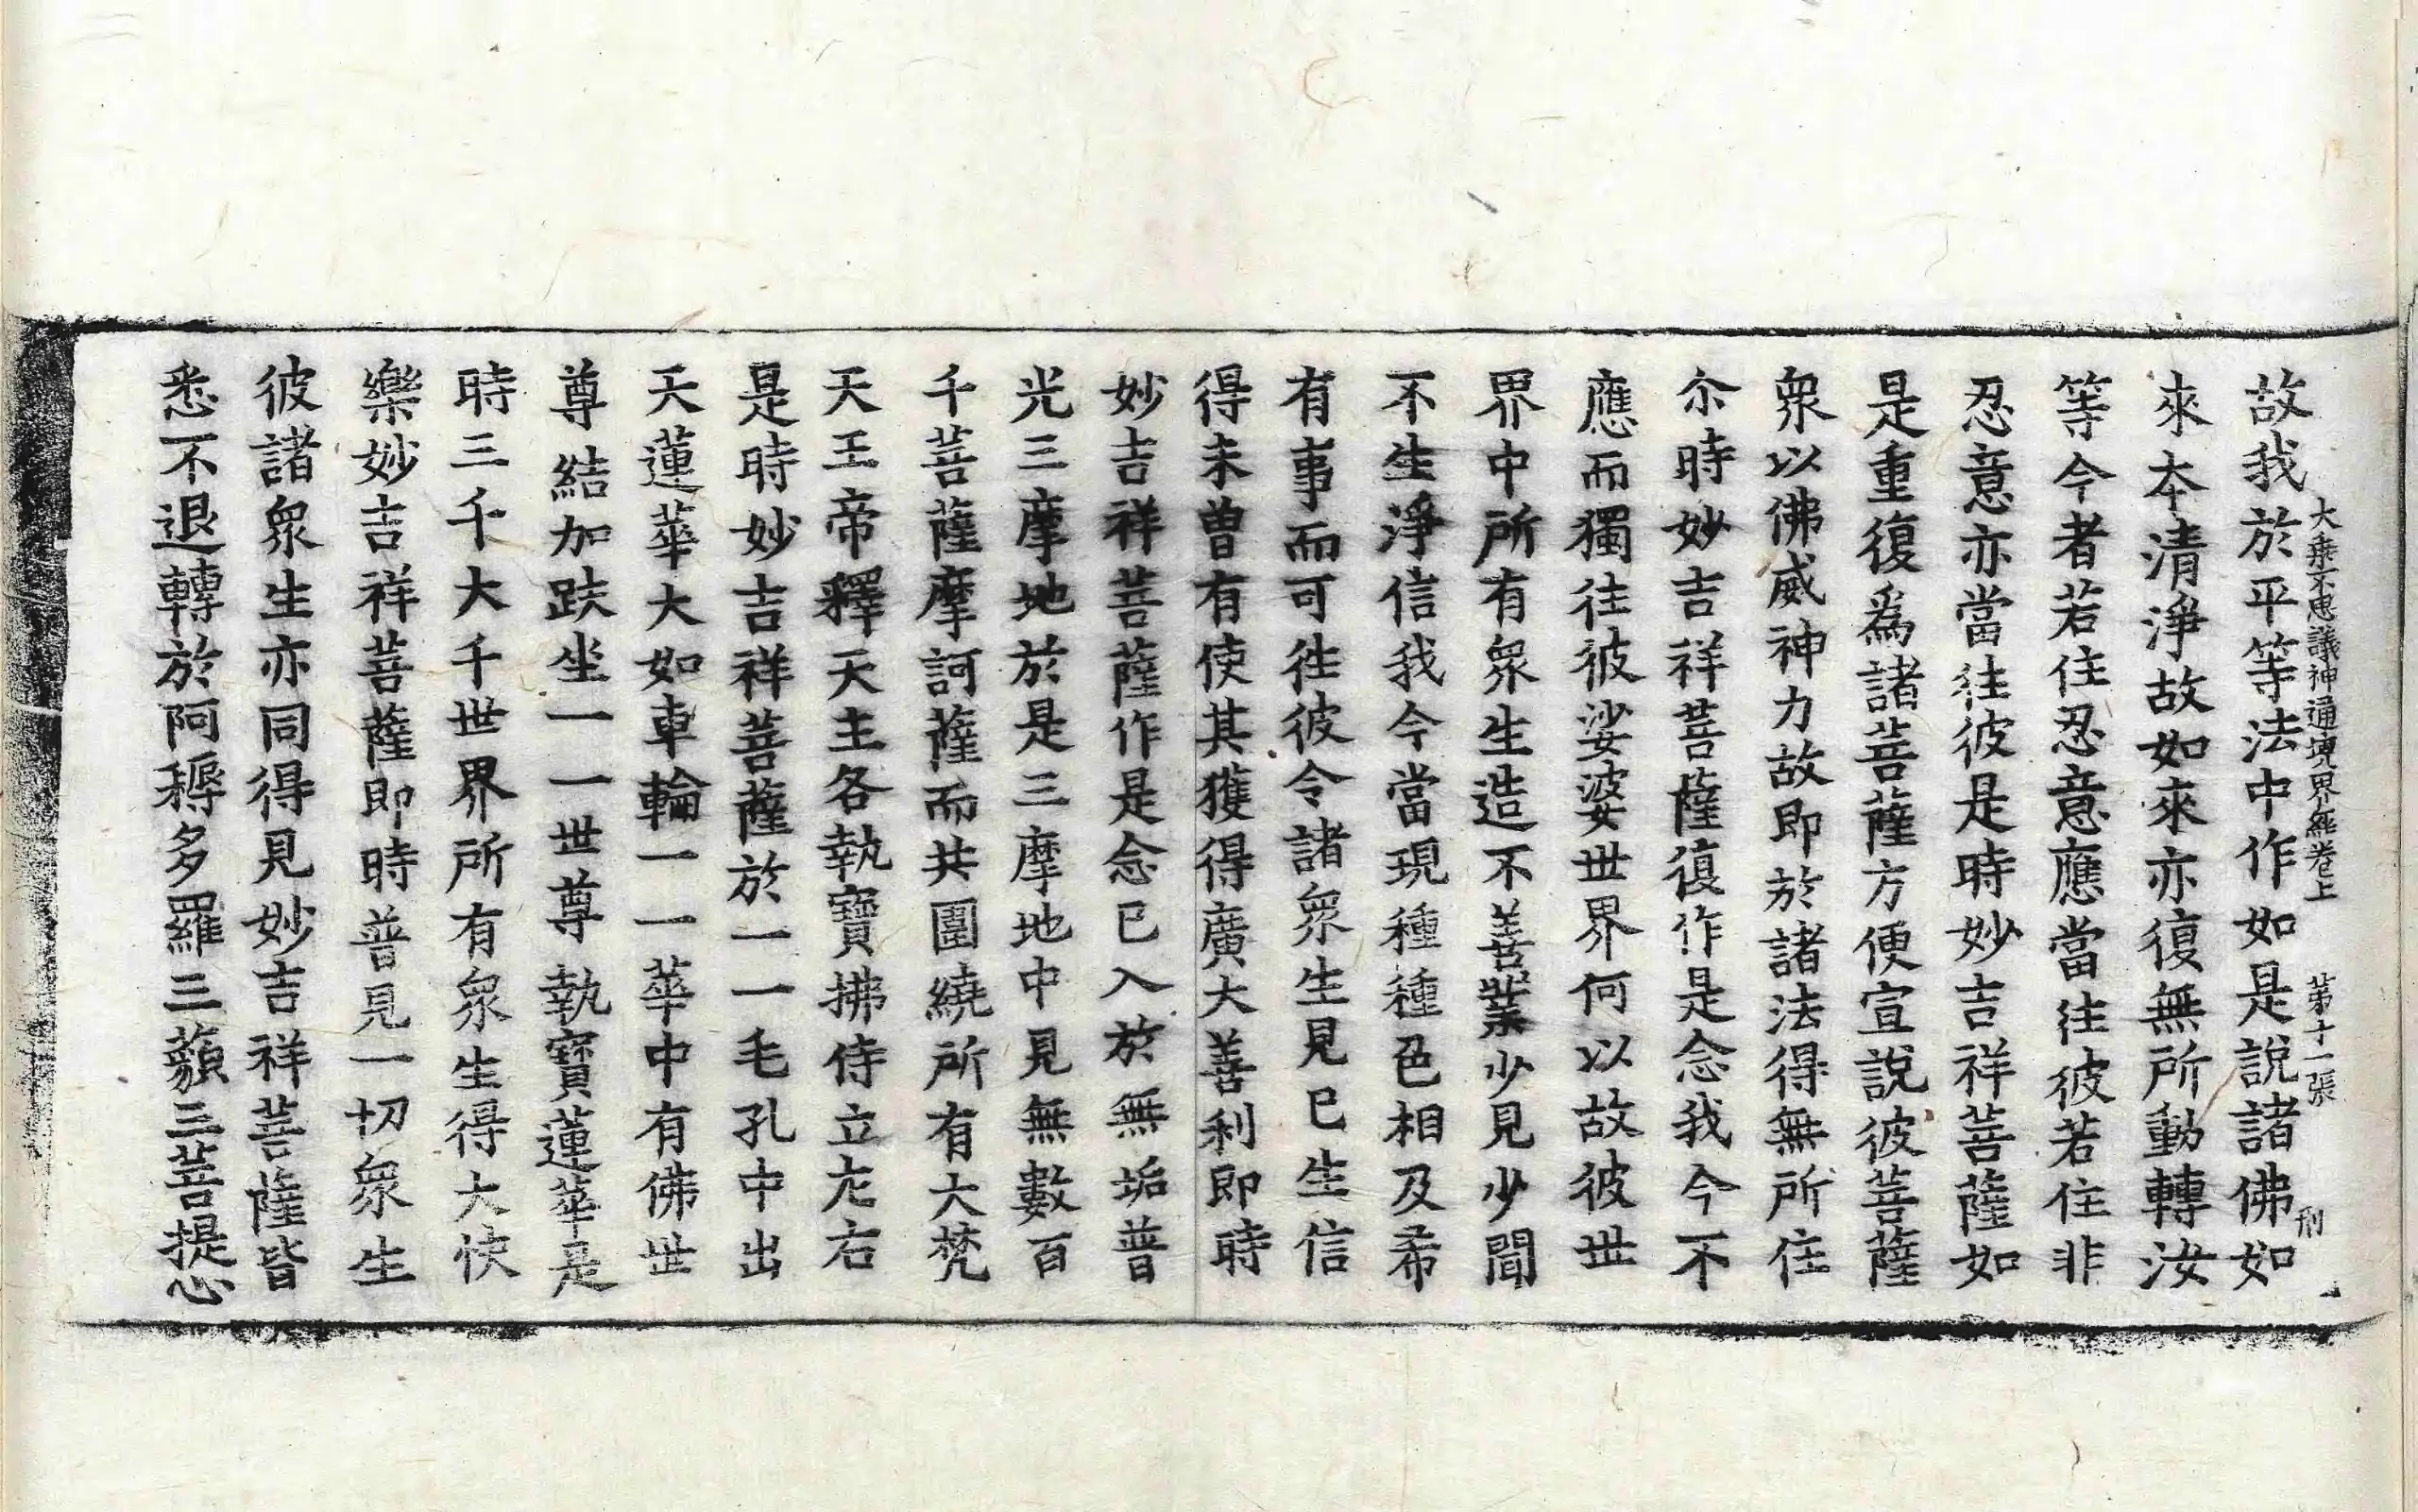 大乘不思議神通境界經卷上 第十一張 刑
故我於平等法中作如是說諸佛如
來本清淨故如來亦復無所動轉汝
等今者若住忍意應當往彼若住非
忍意亦當往彼是時妙吉祥菩薩如
是重復爲諸菩薩方便宣說彼菩薩
衆以佛威神力故即於諸法得無所住
尒時妙吉祥菩薩復作是念我今不
應而獨往彼娑婆世界何以故彼世
界中所有衆生造不善業少見少聞
不生淨信我今當現種種色相及希
有事而可往彼令諸衆生見已生信
得未曾有使其獲得廣大善利即時
妙吉祥菩薩作是念已入於無垢普
光三摩地於是三摩地中見無數百
千菩薩摩訶薩而共圍繞所有大梵
天王帝釋天主各執寶拂侍立左右
是時妙吉祥菩薩於一一毛孔中出
天蓮華大如車輪一一華中有佛世
尊結加趺坐一一世尊執寶蓮華是
時三千大千世界所有衆生得大快
樂妙吉祥菩薩即時普見一切衆生
彼諸衆生亦同得見妙吉祥菩薩皆
悉不退轉於阿耨多羅三藐三菩提心